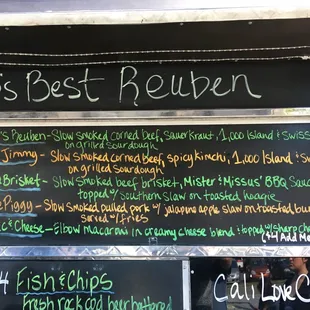 's Best Reuben
's Reuben - Slow smoked corned beef, Sauerkraut, 1,000 Island & Swiss
on grilled sourdough
Jimmy - Slow smoked corned beef, spicy kimchi, 1,000 Island & S
on grilled sourdough
Brisket - Slow smoked beef brisket, Mister & Missus' BBQ Sauc
topped w/ southern slaw on toasted hoagie
Piggy - Slow smoked pulled pork w/ jalapeno apple slaw on toasted bun
served w/ fries
c & Cheese - Elbow Macaroni in creamy cheese blend topped w/ sharp che
(+4 Add Me
4 Fish & Chips
Fresh rock cod beer battered
Cali Love C